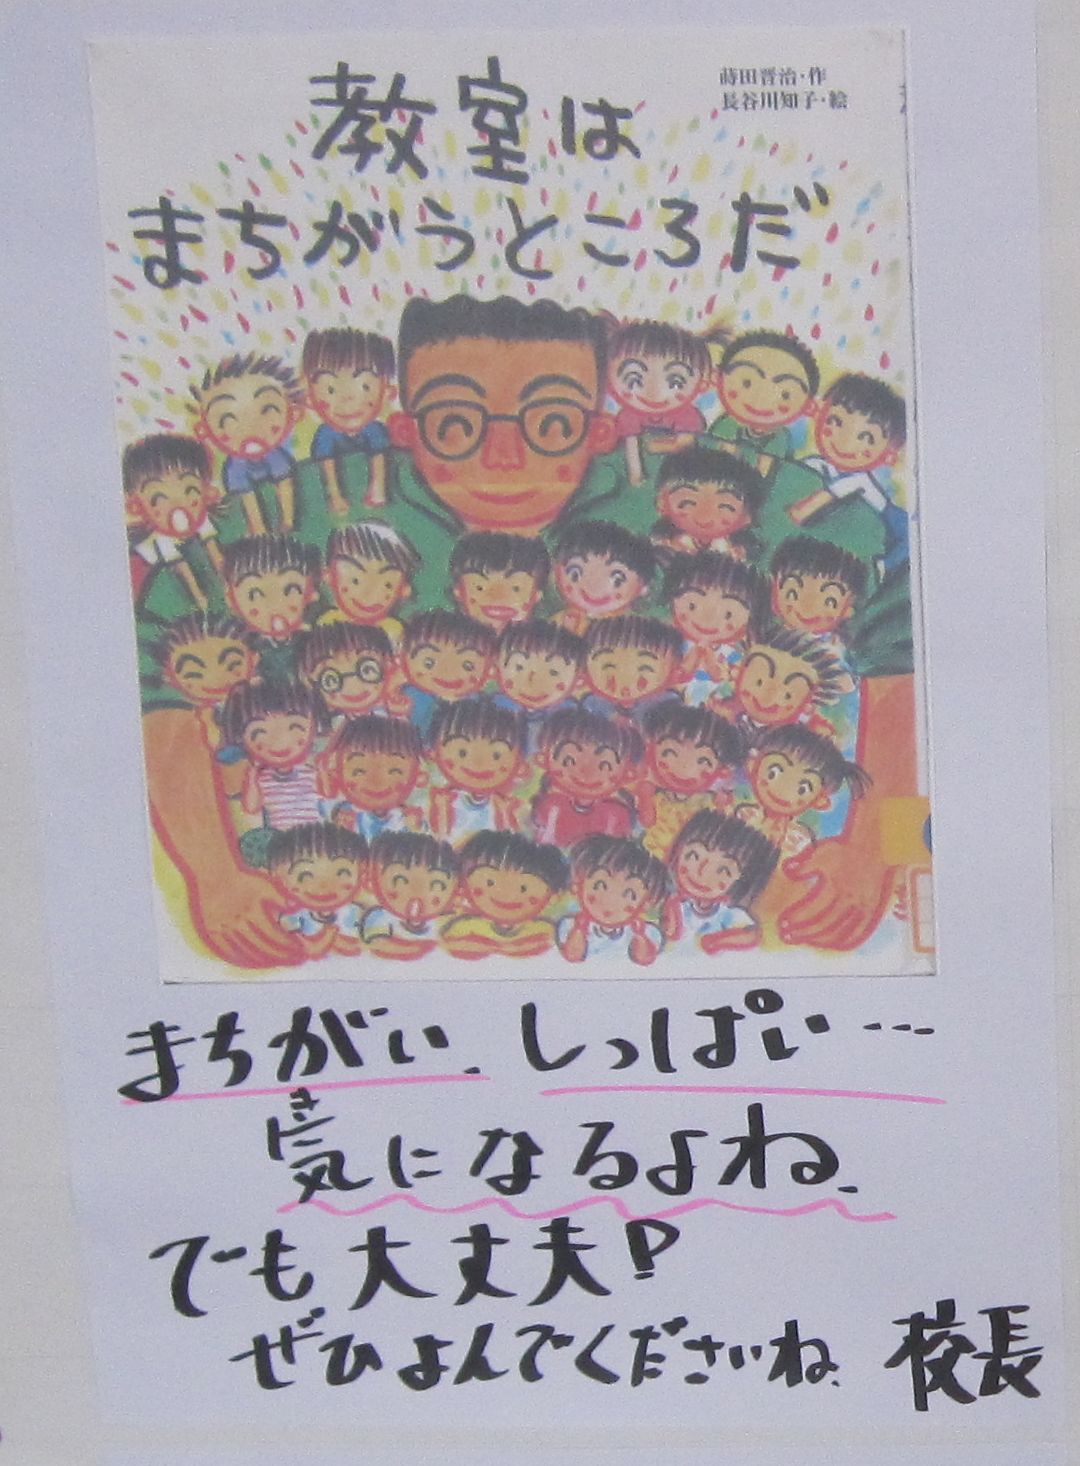 教室は
まちがうところだ
蒔田晋治・作
長谷川知子・絵
まちがい、しっぱい…
気になるよね、
き
でも大丈夫!
ぜひよんでくださいね、校長